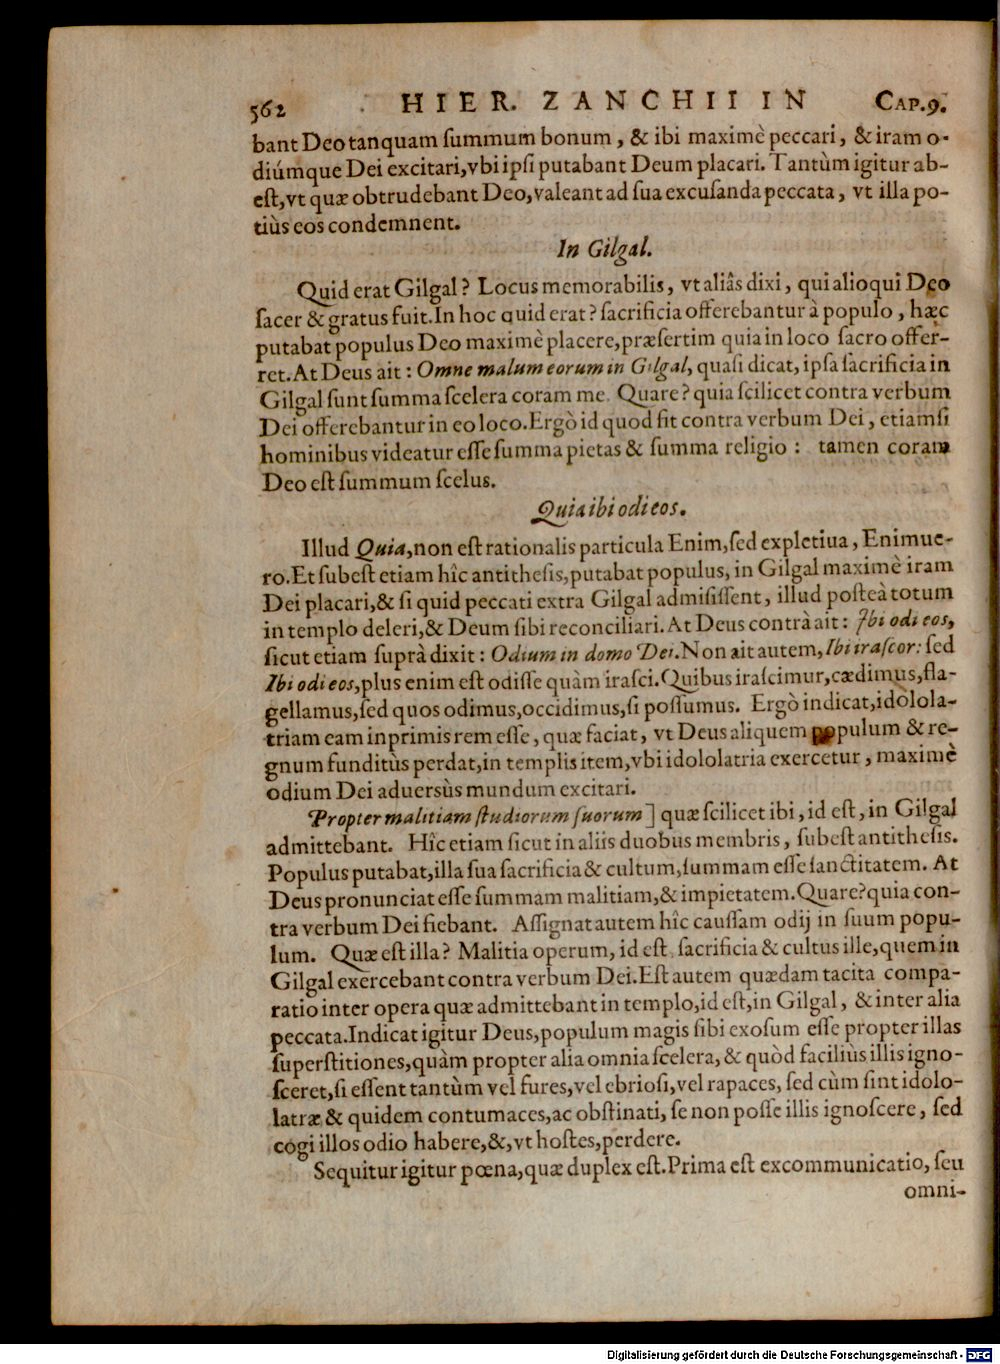 562 HIER. ZANCHII IN CAP.9.
bant Deo tanquam ſummum bonum, & ibi maximè peccari, & iram o-
diúmque Dei excitari, vbi ipſi putabant Deum placari. Tantùm igitur ab-
eſt, vt quæ obtrudebant Deo, valeant ad ſua excuſanda peccata, vt illa po-
tiùs eos condemnent.
In Gilgal.
Quid erat Gilgal? Locus memorabilis, vt aliâs dixi, qui alioqui Deo
ſacer & gratus fuit. In hoc quid erat? ſacrificia offerebantur à populo, hæc
putabat populus Deo maximè placere, præſertim quia in loco ſacro offer-
ret. At Deus ait: Omne malum eorum in Gilgal, quaſi dicat, ipſa ſacrificia in
Gilgal ſunt ſumma ſcelera coram me. Quare? quia ſcilicet contra verbum
Dei offerebantur in eo loco. Ergò id quod fit contra verbum Dei, etiamſi
hominibus videatur eſſe ſumma pietas & ſumma religio: tamen coram
Deo eſt ſummum ſcelus.
Quia ibi odi eos.
Illud Quia, non eſt rationalis particula Enim, ſed expletiua, Enimue-
ro. Et ſubeſt etiam hîc antitheſis, putabat populus, in Gilgal maximè iram
Dei placari, & ſi quid peccati extra Gilgal admiſiſſent, illud poſteà totum
in templo deleri, & Deum ſibi reconciliari. At Deus contrà ait: Ibi odi eos,
ſicut etiam ſuprà dixit: Odium in domo Dei. Non ait autem, Ibi iraſcor: ſed
Ibi odi eos, plus enim eſt odiſſe quàm iraſci. Quibus iraſcimur, cædimus, fla-
gellamus, ſed quos odimus, occidimus, ſi poſſumus. Ergò indicat, idolola-
triam eam inprimis rem eſſe, quæ faciat, vt Deus aliquem populum & re-
gnum funditùs perdat, in templis item, vbi idololatria exercetur, maximè
odium Dei aduersùs mundum excitari.
Propter malitiam ſtudiorum ſuorum] quæ ſcilicet ibi, id eſt, in Gilgal
admittebant. Hîc etiam ſicut in aliis duobus membris, ſubeſt antitheſis.
Populus putabat, illa ſua ſacrificia & cultum, ſummam eſſe ſanctitatem. At
Deus pronunciat eſſe ſummam malitiam, & impietatem. Quare? quia con-
tra verbum Dei fiebant. Aſſignat autem hîc cauſſam odij in ſuum popu-
lum. Quæ eſt illa? Malitia operum, id eſt, ſacrificia & cultus ille, quem in
Gilgal exercebant contra verbum Dei. Eſt autem quædam tacita compa-
ratio inter opera quæ admittebant in templo, id eſt, in Gilgal, & inter alia
peccata. Indicat igitur Deus, populum magis ſibi exoſum eſſe propter illas
ſuperſtitiones, quàm propter alia omnia ſcelera, & quòd faciliùs illis igno-
ſceret, ſi eſſent tantùm vel fures, vel ebrioſi, vel rapaces, ſed cùm ſint idolo-
latræ & quidem contumaces, ac obſtinati, ſe non poſſe illis ignoſcere, ſed
cogi illos odio habere, &, vt hoſtes, perdere.
Sequitur igitur pœna, quæ duplex eſt. Prima eſt excommunicatio, ſeu
omni-
Digitalisierung gefördert durch die Deutsche Forschungsgemeinschaft - DFG